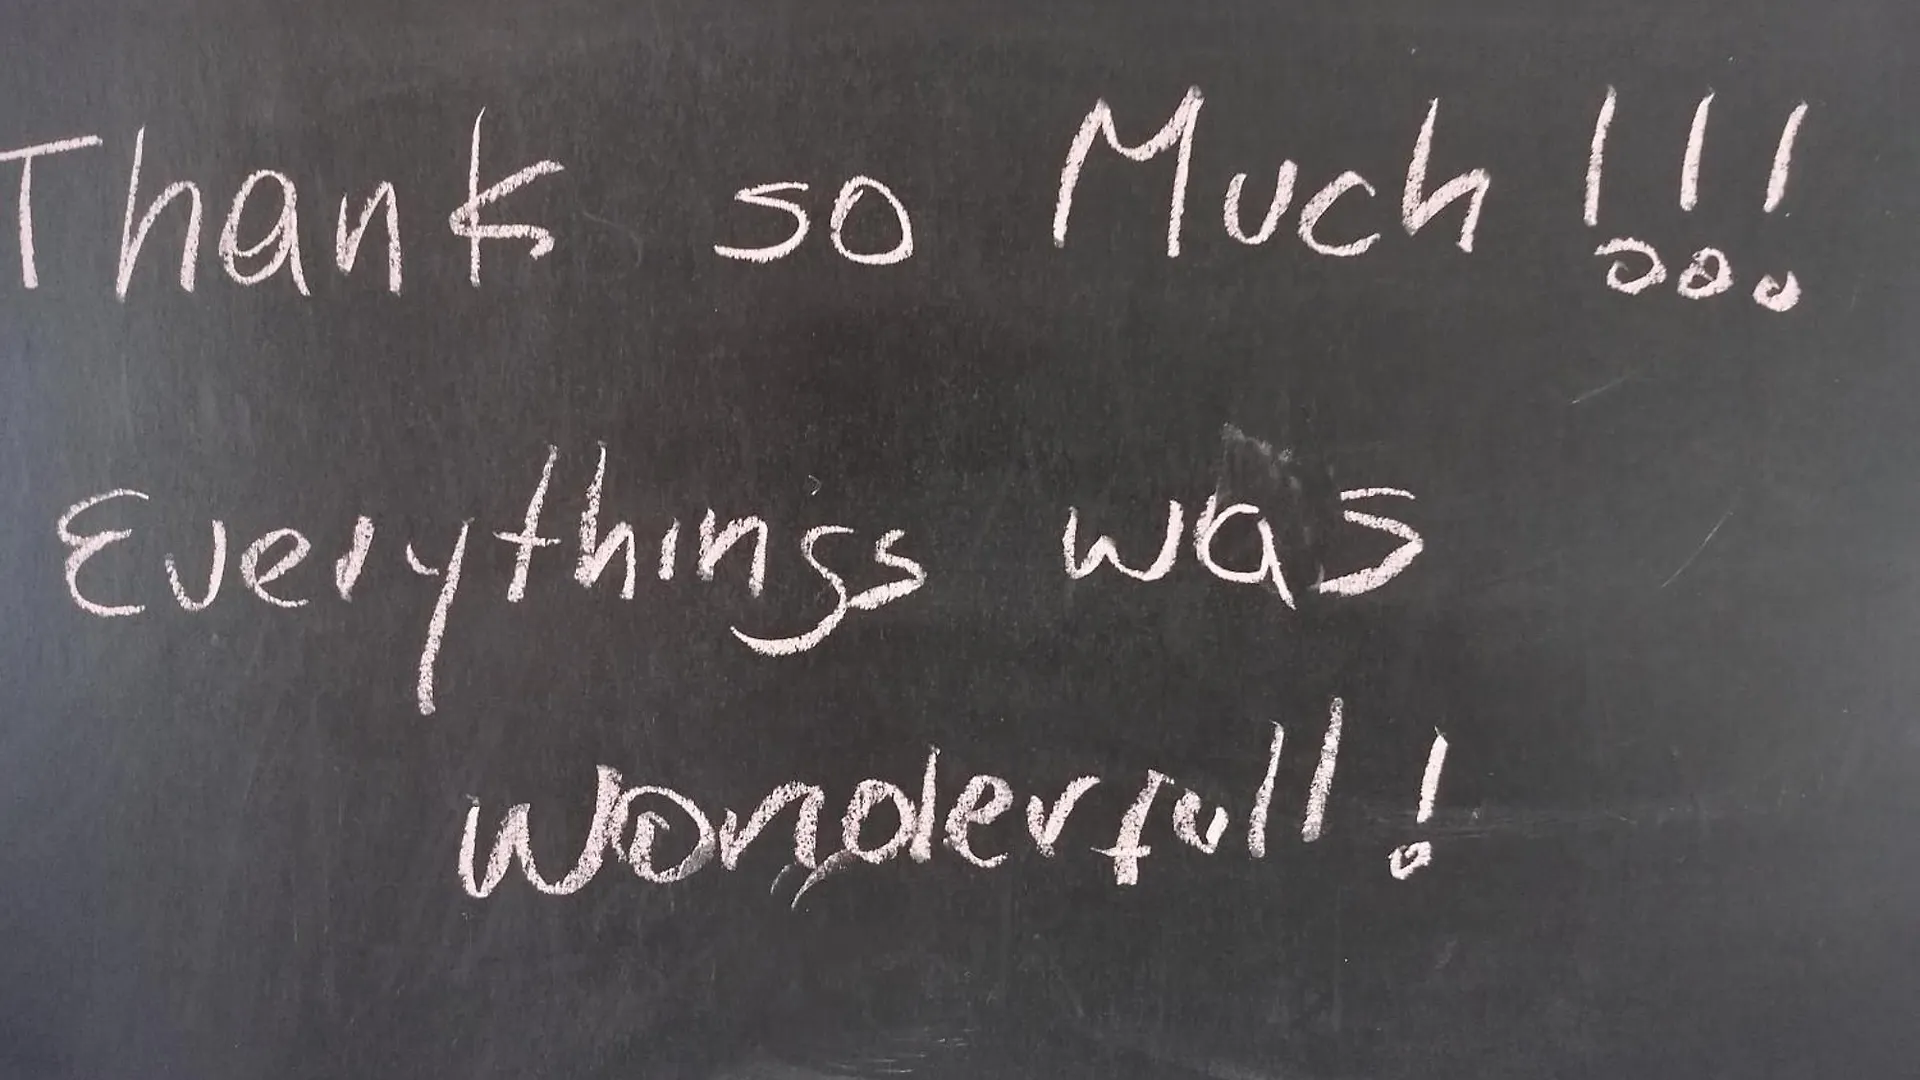 Thank so Much !!!
Everythings was
wonderfull!